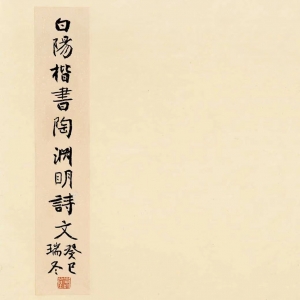 白陽楷書陶淵明詩文
癸巳
瑞冬